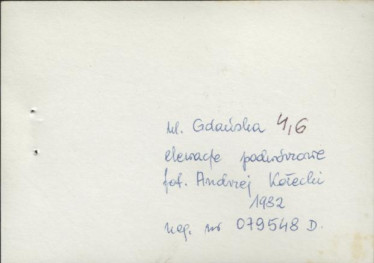 ul. Gdańska 4,6
elewacje podwórzowe
fot. Andrzej Kołecki
1982
neg. nr 079548 D.